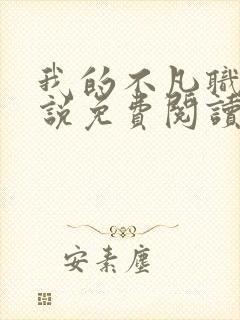 我的不凡職
說免費閱讀
安素塵